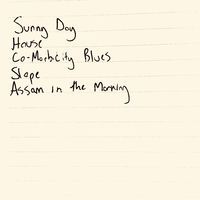 Sunny Day
House
Co-Morbidity Blues
Slope
Assam in the Morning